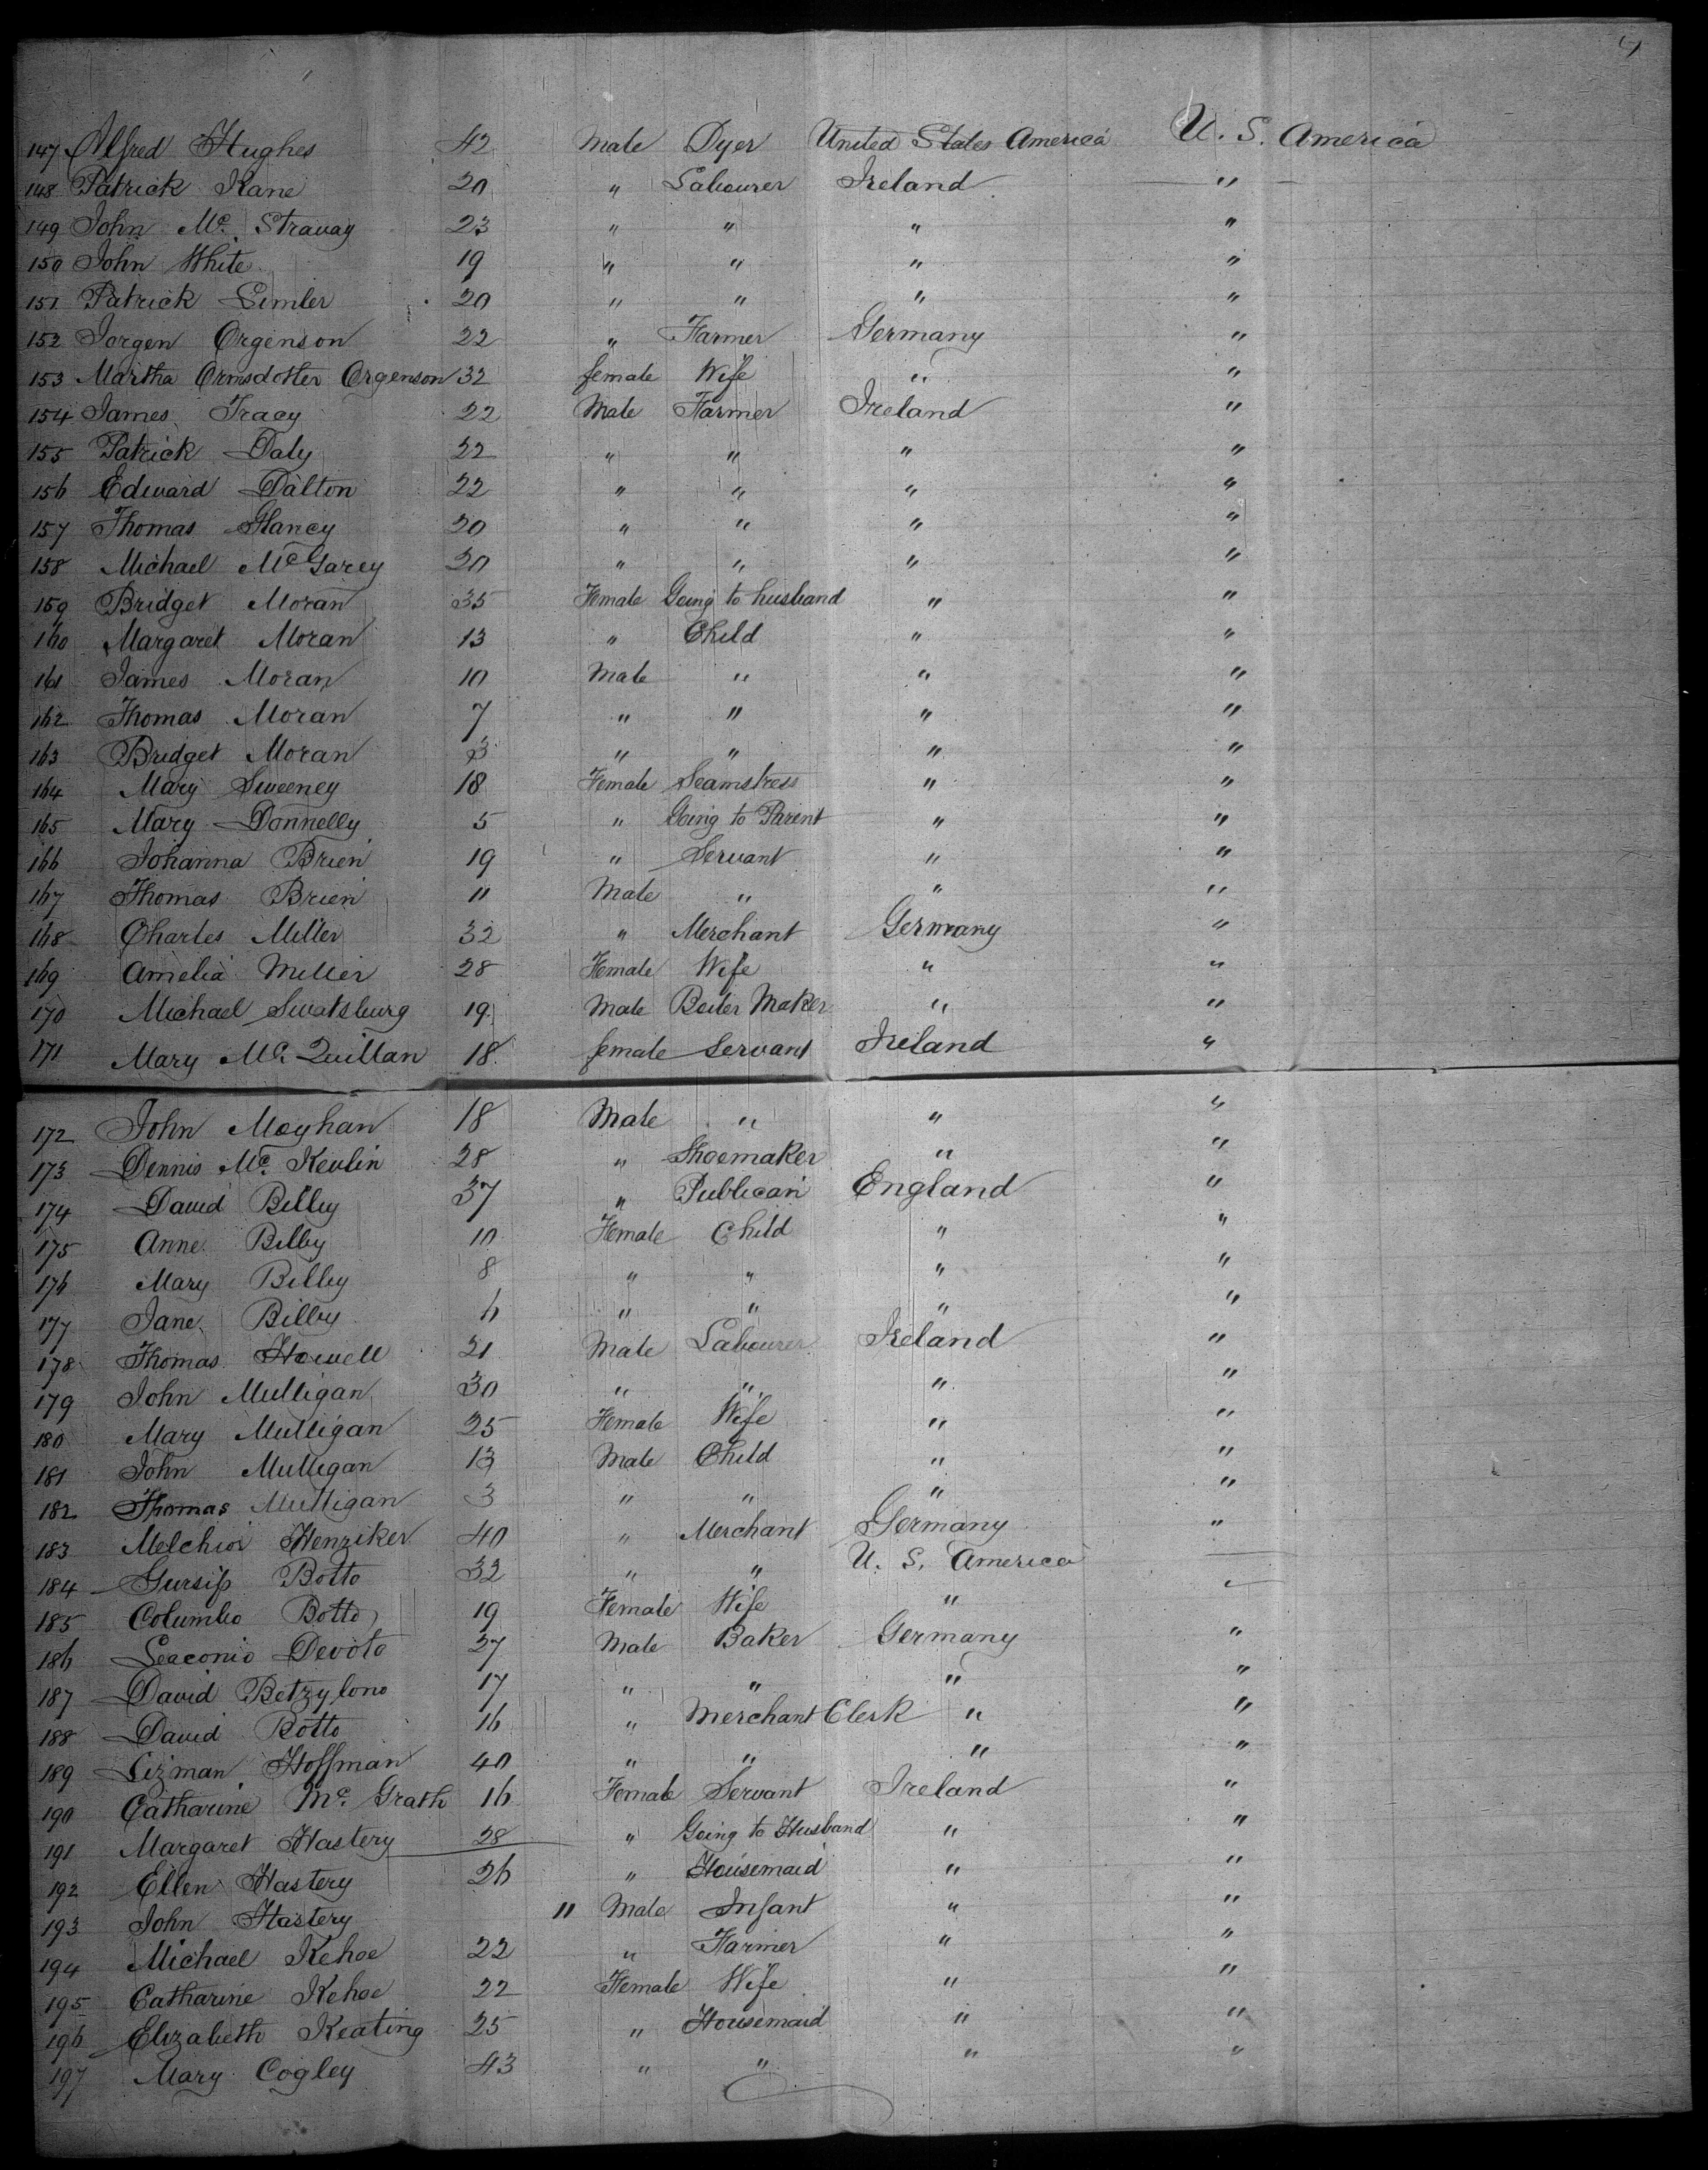 4
147 Alfred Hughes 42 Male Dyer United States America U. S. America
148 Patrick Kane 20 " Labourer Ireland "
149 John Mc. Stravay 23 " " " "
150 John White 19 " " " "
151 Patrick Limler 20 " " " "
152 Jorgen Orgenson 22 " Farmer Germany "
153 Martha Ormsdotter Orgenson 32 female Wife " "
154 James Tracy 22 Male Farmer Ireland "
155 Patrick Daly 22 " " " "
156 Edward Dalton 22 " " " "
157 Thomas Glancy 20 " " " "
158 Michael McGarey 20 " " " "
159 Bridget Moran 35 Female Going to husband " "
160 Margaret Moran 13 " Child " "
161 James Moran 10 Male " " "
162 Thomas Moran 7 " " " "
163 Bridget Moran 3 " " " "
164 Mary Sweeney 18 Female Seamstress " "
165 Mary Donnelly 5 " Going to Parent " "
166 Johanna Brien 19 " Servant " "
167 Thomas Brien 11 Male " " "
168 Charles Miller 32 " Merchant Germany "
169 Amelia Miller 28 Female Wife " "
170 Michael Swatsburg 19 Male Boiler Maker " "
171 Mary Mc. Quillan 18 female Servant Ireland "
172 John Moyhan 18 Male " " "
173 Dennis Mc. Kevlin 28 " Shoemaker " "
174 David Bilby 37 " Publican England "
175 Anne Bilby 10 Female Child " "
176 Mary Bilby 8 " " " "
177 Jane Bilby 6 " " " "
178 Thomas Howell 21 Male Labourer Ireland "
179 John Mulligan 30 " " " "
180 Mary Mulligan 25 Female Wife " "
181 John Mulligan 13 Male Child " "
182 Thomas Mulligan 3 " " " "
183 Melchior Henziker 40 " Merchant Germany "
184 Botto 32 " " U. S. America
185 Columbo Botto 19 Female Wife " "
186 Leaconio Devoto 27 Male Baker Germany "
187 David Betzylono 17 " " " "
188 David Botto 16 " Merchant Clerk " "
189 Lizman Hoffman 40 " " " "
190 Catharine Mc. Grath 16 Female Servant Ireland "
191 Margaret Hastery 28 " Going to Husband " "
192 Ellen Hastery 26 " Housemaid " "
193 John Hastery 11 Male Infant " "
194 Michael Kehoe 22 " Farmer " "
195 Catharine Kehoe 22 Female Wife " "
196 Elizabeth Keating 25 " Housemaid " "
197 Mary Cogley 43 " " " "